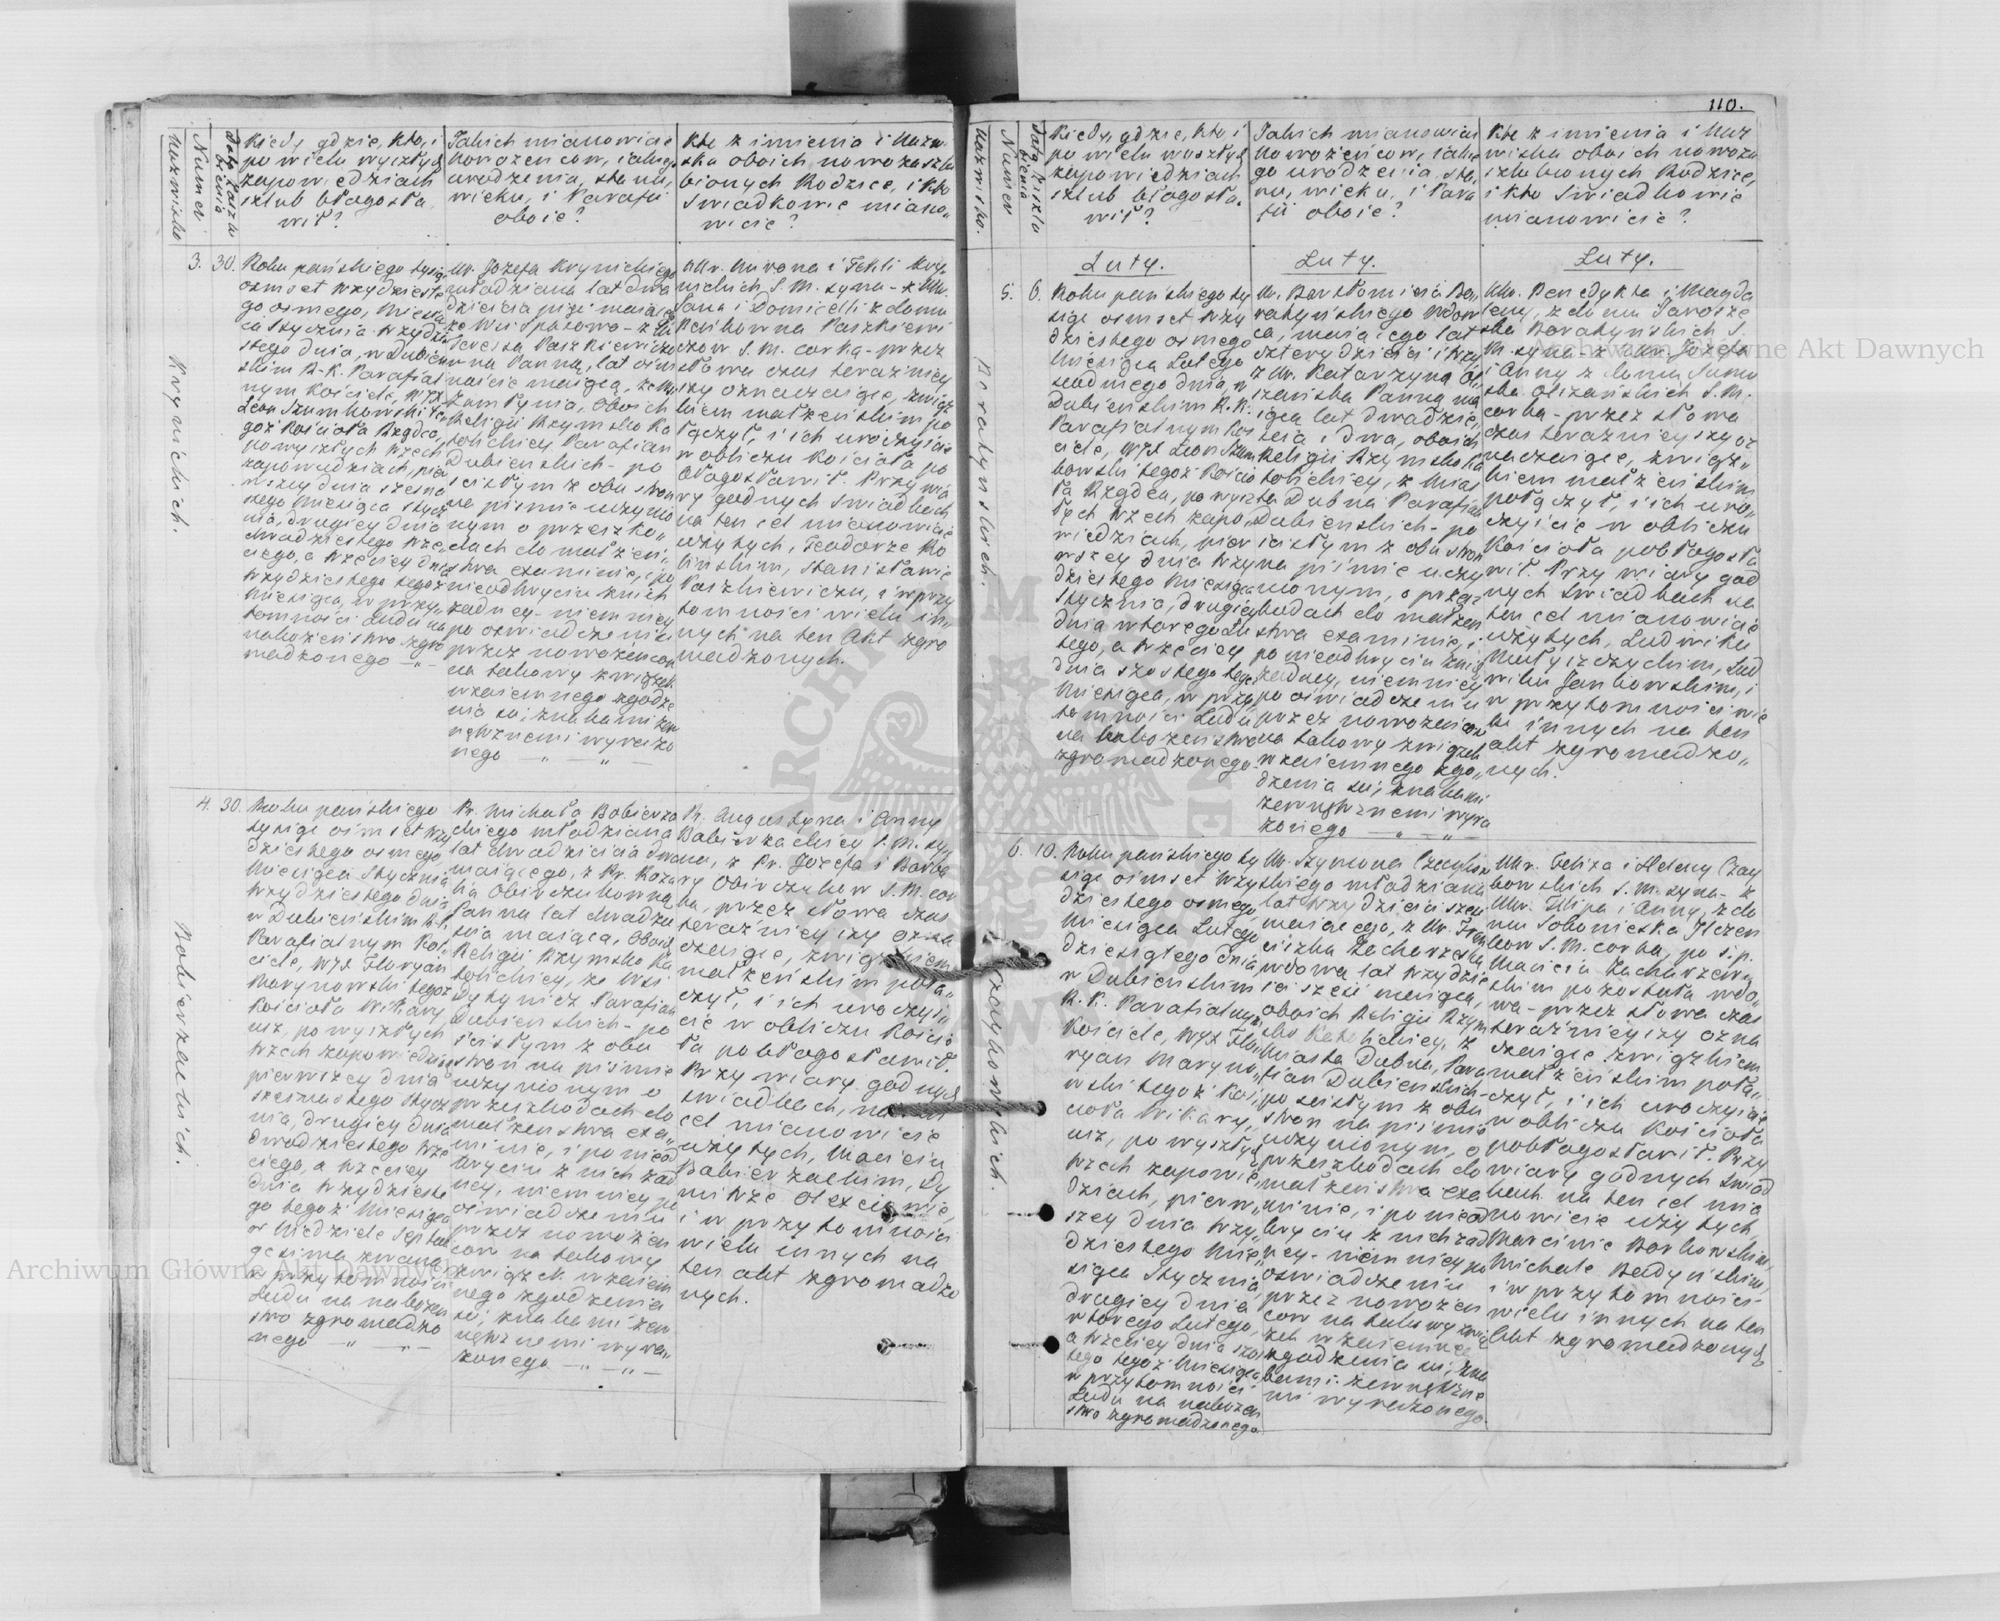 Nazwisko
Numer
Data kalza
bienia
Kiedy, gdzie, kto, i
po wielu wyszłych
zapowiedziach
szlub błogosła
wił?
Jakich mianowicie
Nowożencow, iakiego
urodzenia, stanu,
wieku, i Parafii
oboie?
Kto z imienia i Nazw
ska oboich nowozaszlu
bionych Rodzice, i kto
Swiadkowie miano„
wicie?
3. 30.
Krynickich.
Roku pańskiego tysią
osmset trzydzieste
go osmego, Miesią
ca Stycznia trzydzie
stego dnia, w Dubień
skim R. K. Parafial
nym Kościele, WJX
Leon Szumkowski te
goż Kościoła Rządca,
po wyszłych trzech
zapowiedziach, pier
wszey dnia szesna
stego Miesiąca Stycz
nia, drugiey dnia
dwadziestego trze
ciego, a trzeciey dnia
trzydziestego tegoż
Miesiąca, w przy„
tomności Ludu na
nabożeństwo zgro
madzonego — „ —
Ur. Jozefa Krynickiego
młodziana lat dwa
dzieścia pięć maiącego
ze Wsi Spasowa - z Ur.
Teressą Paszkiewiczo
wna Panną, lat osm
naście maiącą, ze Wsi
oboich
Religii Rzymsko Ka
tolickiey Parafian
Dubienskich - po
scisłym z obu stron
na pismie uczynio
nym o przeszko„
dach do małżeń„
stwa examinie, i po
nieodkryciu z nich
żadney - niemniey
po oswiadczeniu
przez nowożencow
na takowy związek
wzaiemnego zgodze
nia się, znakami zew
nętrznemi wyrażo
nego — „ —
UUr. Mirona i Tekli Kry„
nickich S. M. syna - z UUr.
Jana i Domicelli z domu
Paszkiewi
czow S. M. corka - przez
słowa czas terazniey
szy oznaczaiące, związ
kiem małżeńskim po
łączył, i ich uroczyscie
w obliczu Kościoła po
błogosławił. Przy wia
ry godnych Swiadkach
na ten cel mianowicie
użytych, Teodorze Ro
linskim, Stanisławie
Paszkiewiczu, i w przy
tomności wielu in„
nych na ten Akt zgro
madzonych.
4. 30.
Bobierzackich.
Roku pańskiego
tysiąc osmset trzy
dziestego osmego
Miesiąca Stycznia
trzydziestego dnia
w Dubienskim R. K.
Parafialnym Koś
ciele, WJX Floryan
Marynowski tegoż
Kościoła Wikary
usz, po wyszłych
trzech zapowiedziach
pierwszey dnia
szesnastego Stycz
nia, drugiey dnia
dwadziestego trze
ciego, a trzeciey
dnia trzydzieste
go tegoż Miesiąca
w Niedziele Septua
gesima zwaną
w przytomności
Ludu na nabożeń
stwo zgromadzo
nego — „ —
Pr. Michała Bobierza
ckiego młodziana
lat dwadzieścia dwa
maiącego, z Pr. Roza
lią Obirczukowną
Panną lat dwadzie
ścia maiącą, oboich
Religii Rzymsko Ka
tolickiey, ze Wsi
Dytynicz Parafian
Dubienskich - po
scisłym z obu
stron na pismie
uczynionym o
przeszkodach do
małżeństwa exa„
minie, i po nieod
kryciu z nich żad
ney, niemniey po
oswiadczeniu
przez nowożen
cow na takowy
związek wzaiem
nego zgodzenia
się, znakami zew
nętrznemi wyra„
żonego — „ —
Pr. Augustyna i Anny
Bobierzackich S. M. sy„
na, z Pr. Jozefa i Barba
ry Obirczukow S. M. cor
ka, przez słowa czas
teraznieyszy ozna
czaiące, związkiem
małżeńskim połą„
czył, i ich uroczyś„
cie w obliczu Kościo
ła pobłogosławił.
Przy wiary godnych
swiadkach, na ten
cel mianowicie
użytych, Macieiu
Babierzackim, Dy
mitrze Olexiewie,
i w przytomności
wielu innych na
ten akt zgromadzo
nych.
110.
Nazwisko.
Numer
Data kaszlu
bienia
Kiedy, gdzie, kto i
po wielu wyszłych
zapowiedziach
szlub błogosła„
wił?
Jakich mianowicie
Nowożeńcow, iakie
go urodzenia, sta„
nu, wieku, i Para
fii oboie?
Kto z imienia i Naz
wiska oboich nowoza
szlubionych Rodzice,
i kto Swiadkowie
mianowicie?
Luty.
Luty.
Luty.
5. 6.
Boratynskich.
Roku pańskiego ty
siąc osmset trzy
dziestego osmego
Miesiąca Lutego
szostego dnia, w
Dubieńskim R. K.
Parafialnym Koś
ciele, WJX Leon Szum
kowski tegoż Kościo
ła Rządca, po wysz
łych trzech zapo„
wiedziach, pier
wszey dnia trzy
dziestego Miesiąca
Stycznia, drugiey
dnia wtorego Lu
tego, a trzeciey
dnia szostego tegoż
Miesiąca, w przy
tomności Ludu
na nabożeństwo
zgromadzonego.
Ur. Bartłomieia Bo
ratyńskiego wdow
ca, maiącego lat
czterydzieści i trzy
z Ur. Katarzyną Ol
szańską Panną ma
iącą lat dwadzie„
ścia i dwa, oboich
Religii Rzymsko Ka
tolickiey, z Mias
ta Dubna Parafian
Dubieńskich - po
scisłym z obu stron
na piśmie uczy
nionym, o przesz
kodach do małżeń
stwa examinie, i
po nieodkryciu z nich
żadney, niemniey
po oświadczeniu
przez nowożencow
na takowy związek
wzaiemnego zgo„
dzenia się, znakami
zewnętrznemi wyra
żonego — „ — „ —
UUr. Benedykta i Magda
leny, z domu Jarosze
ska Boratyńskich S.
M. syna - z UUr. Jozefa
i Anny z domu
Olszańskich S. M.
corka - przez słowa
czas teraznieyszy oz
naczaiące, związ„
kiem małżeńskim
połączył, i ich uro„
czyście w obliczu
Kościoła pobłogosła
wił. Przy wiary god
nych Swiadkach na
ten cel mianowicie
użytych, Ludwiku
Matyszczyckim, Lud
wiku Jankowskim, i
w przytomności wie
lu innych na ten
akt zgromadzo„
nych.
6. 10.
Czaykowskich.
Roku pańskiego ty
siąc osmset trzy
dziestego osmego,
Miesiąca Lutego
dziesiątego dnia
w Dubienskim
R. K. Parafialnym
Kościele, WJX Flo
ryan Maryno„
wski tegoż Koś
cioła Wikary„
usz, po wyszłych
trzech zapowie„
dziach, pierw„
szey dnia trzy„
dziestego Mie„
siąca Stycznia,
drugiey dnia
wtorego Lutego,
a trzeciey dnia szos
tego tegoż Miesiąca
w przytomności
Ludu na nabożeń
stwo zgromadzonego.
Ur. Szymona Czaykow
skiego młodziana
lat trzydzieści sześć
maiącego, z Ur. Fran
ciszką Zacharzewską
wdową lat trzydzie
ści sześć maiącą,
oboich Religii Rzym
sko Katolickiey, z
Miasta Dubna, Para
fian Dubienskich -
po scisłym z obu
stron na piśmie
uczynionym, o
przeszkodach do
małżeństwa exa
minie, i po nieod
kryciu z nich żad
ney - niemniey po
oswiadczeniu
przez nowożen
cow na takowy zwią
zek wzaiemne
zgodzenia się, zna
kami zewnętrzne
mi wyrażonego.
UUr. Felixa i Heleny Czay
kowskich S. M. syna - z
UUr. Filipa i Anny, z do
mu Sobonieska
S. M. corka, po ś. p.
Macieiu Zacharzew
skim pozostałą wdo„
wą - przez słowa czas
teraznieyszy ozna
czaiące związkiem
małżeńskim połą„
czył, i ich uroczyście
w obliczu Kościoła
pobłogosławił. Przy
wiary godnych Swiad
kach na ten cel mia
nowicie użytych,
Marcinie Borkowskim,
Michale Badyńskim,
i w przytomności
wielu innych na ten
akt zgromadzonych
Archiwum Główne Akt Dawnych
Archiwum Główne Akt Dawnych
Archiwum Główne Akt Dawnych